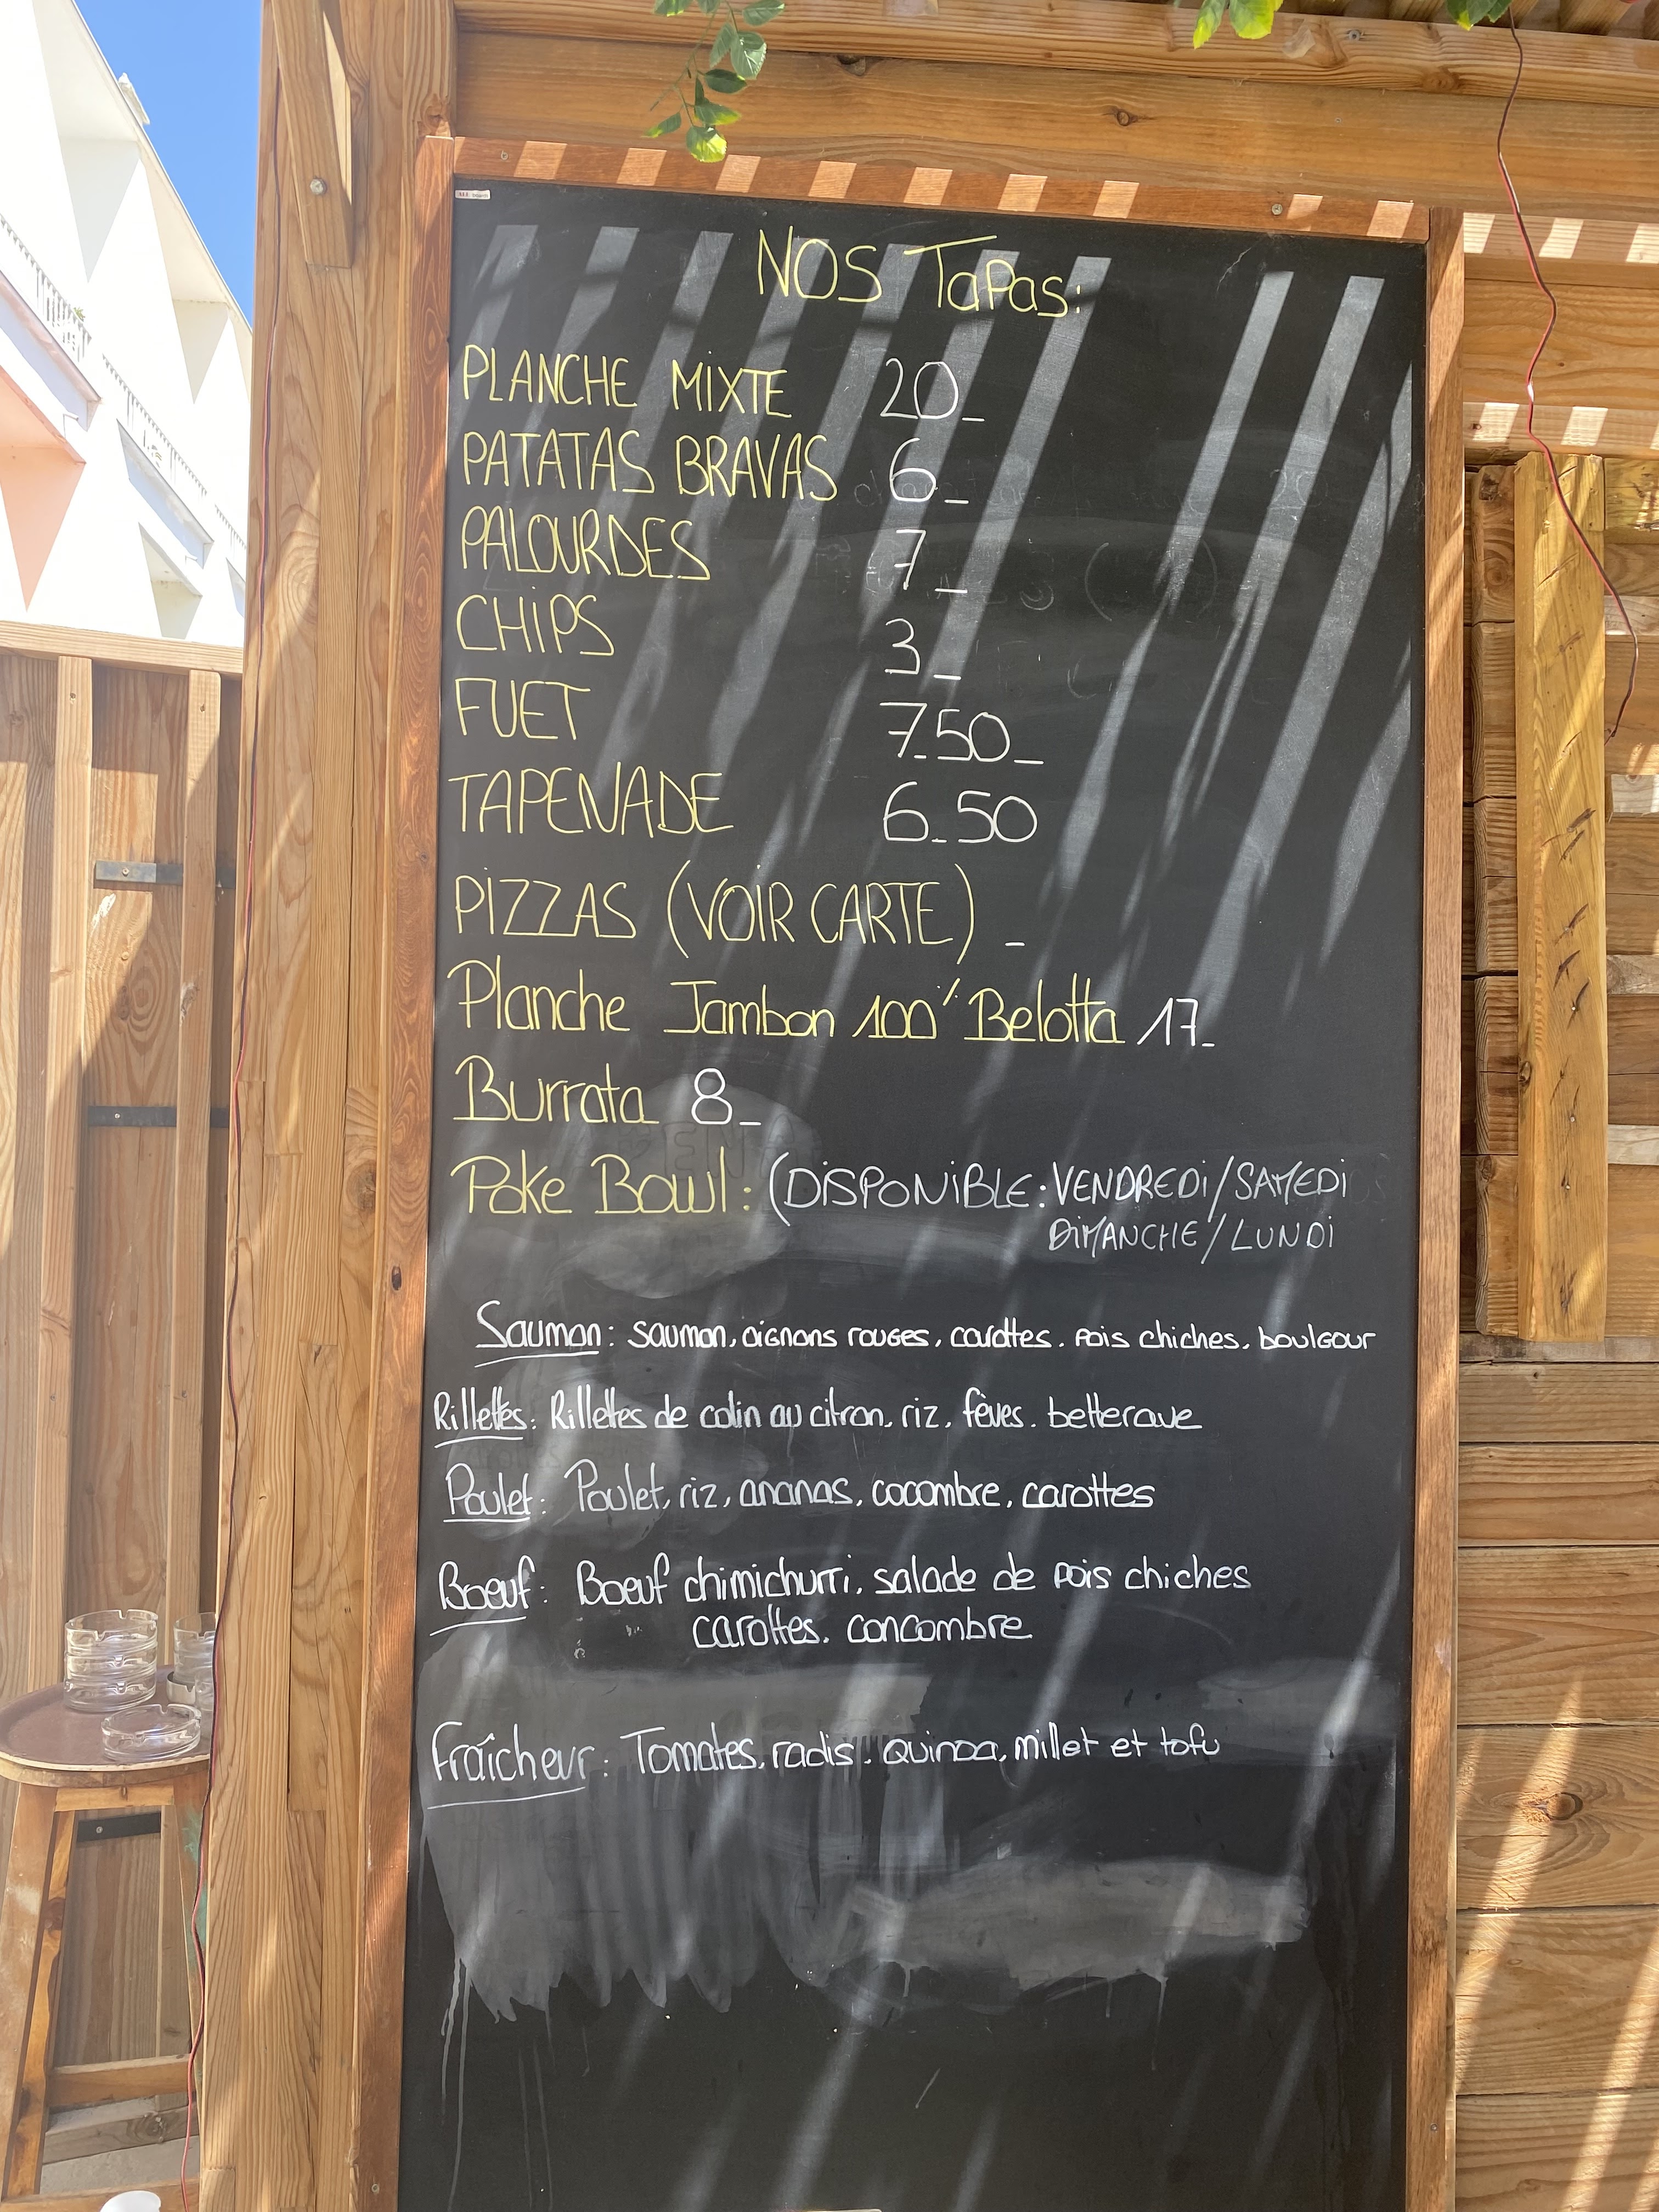 NOS TaPas:
PLANCHE MIXTE 20_
PATATAS BRAVAS 6_
PALOURDES 7_
CHIPS 3_
FUET 7.50_
TAPENADE 6.50
PIZZAS (VOIR CARTE) _
Planche Jambon 100% Belotta 17_
Burrata 8_
Poke Bowl: (DISPONIBLE: VENDREDI/SAMEDI
DIMANCHE/LUNDI
Saumon: saumon, oignons rouges, carottes. pois chiches, boulgour
Rillettes: Rillettes de colin au citron, riz, fèves. betterave
Poulet: Poulet, riz, ananas, cocombre, carottes
Boeuf: Boeuf chimichurri, salade de pois chiches
carottes. concombre
Fraîcheur: Tomates, radis. quinoa, millet et tofu